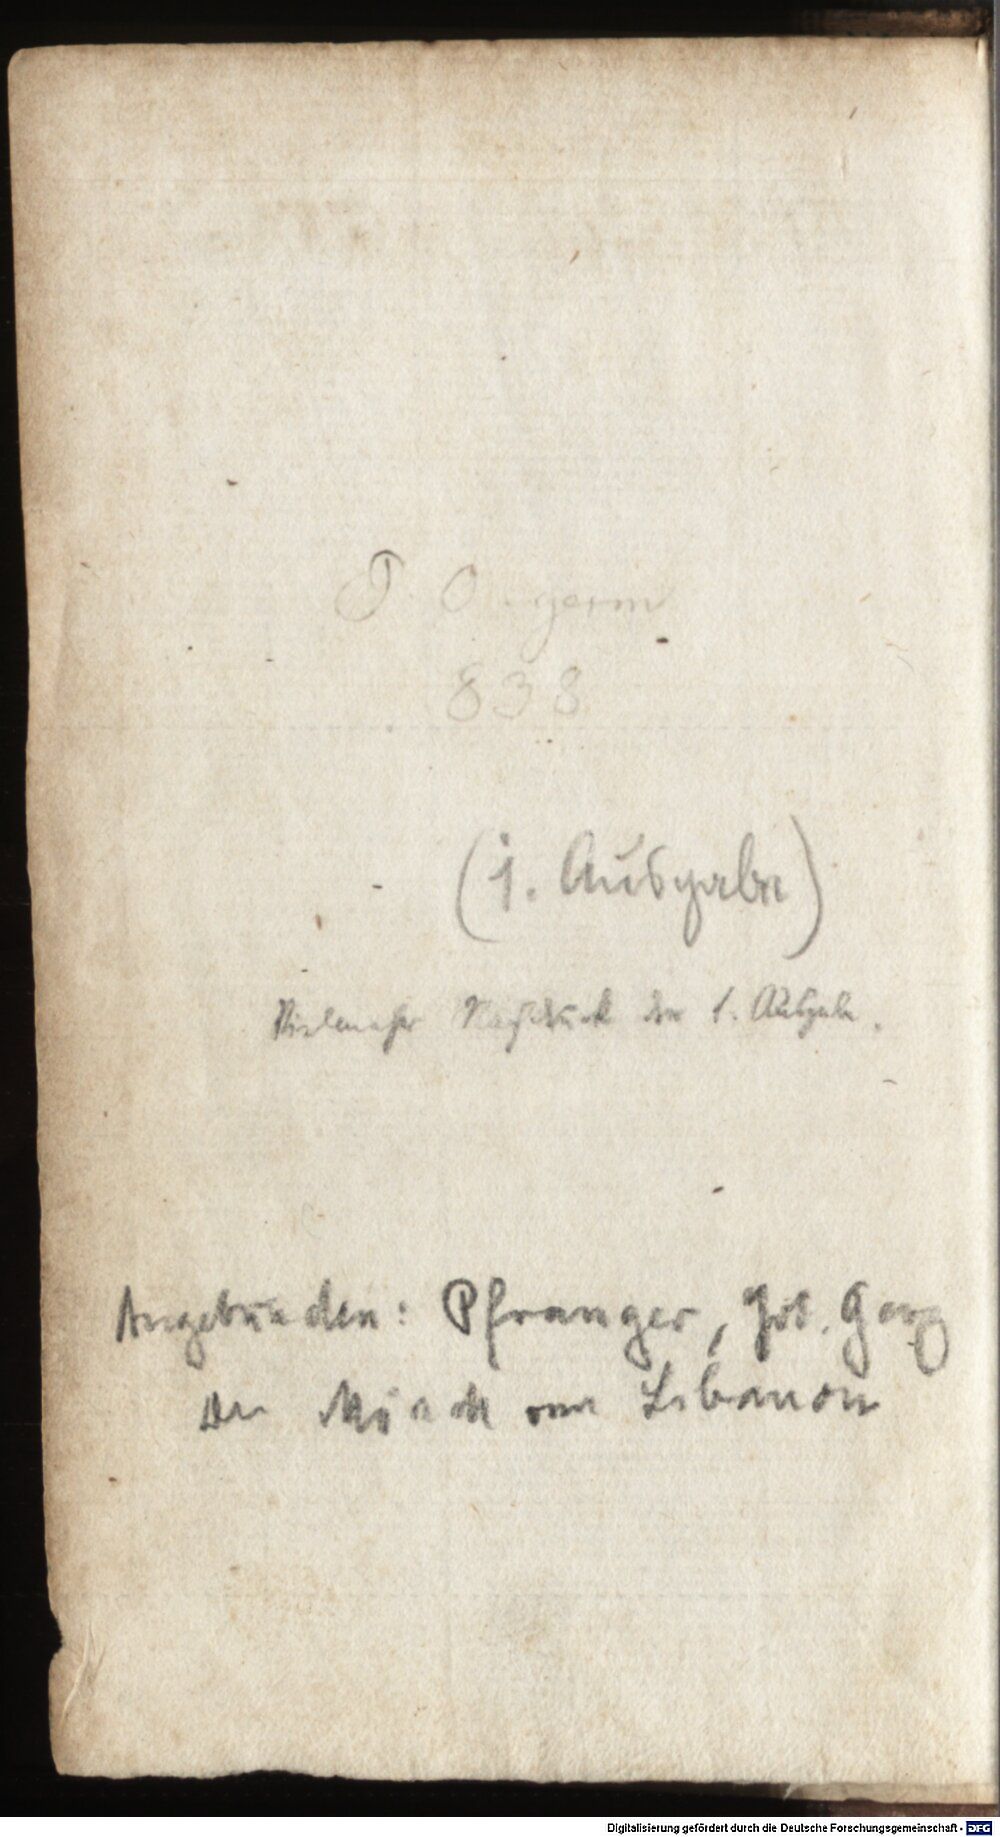 P. O. germ
838
(1. Ausgabe)
Vielmehr Nachdruck der 1. Ausgabe.
Angebunden: Pfranger, Joh. Georg
Der Mönch vom Libanon
Digitalisierung gefördert durch die Deutsche Forschungsgemeinschaft - DFG